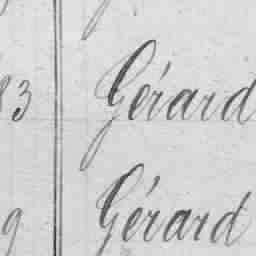 83 Gérard
9 Gérard